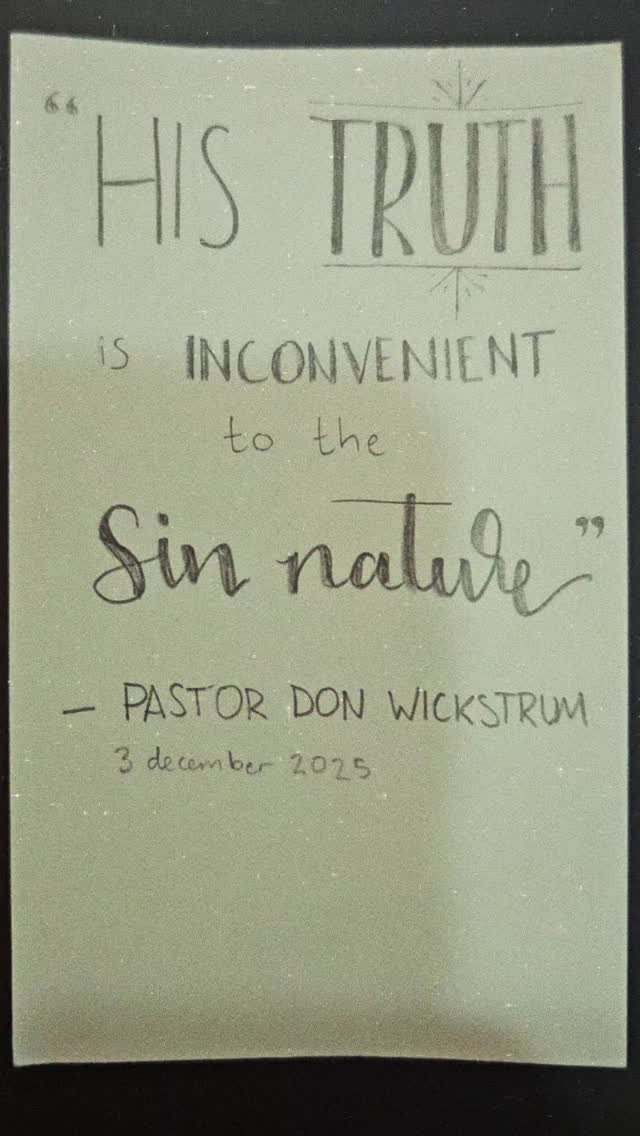 “HIS TRUTH
is INCONVENIENT
to the
Sin nature”
– PASTOR DON WICKSTRUM
3 december 2025